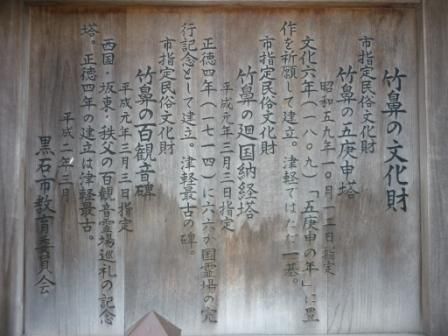 竹鼻の文化財
市指定民俗文化財
竹鼻の五庚申塔
昭和五九年一〇月一二日指定
文化六年(一八〇九)「五庚申の年」に豊
作を祈願して建立。津軽ではただ一基。
市指定民俗文化財
竹鼻の廻国納経塔
平成元年三月三日指定
正徳四年(一七一四)に六六か国霊場の完
行記念として建立。津軽最古の碑。
市指定民俗文化財
竹鼻の百観音碑
平成元年三月三日指定
西国・坂東・秩父の百観音霊場巡礼の記念
塔。正徳四年の建立は津軽最古。
平成二年三月
黒石市教育委員会